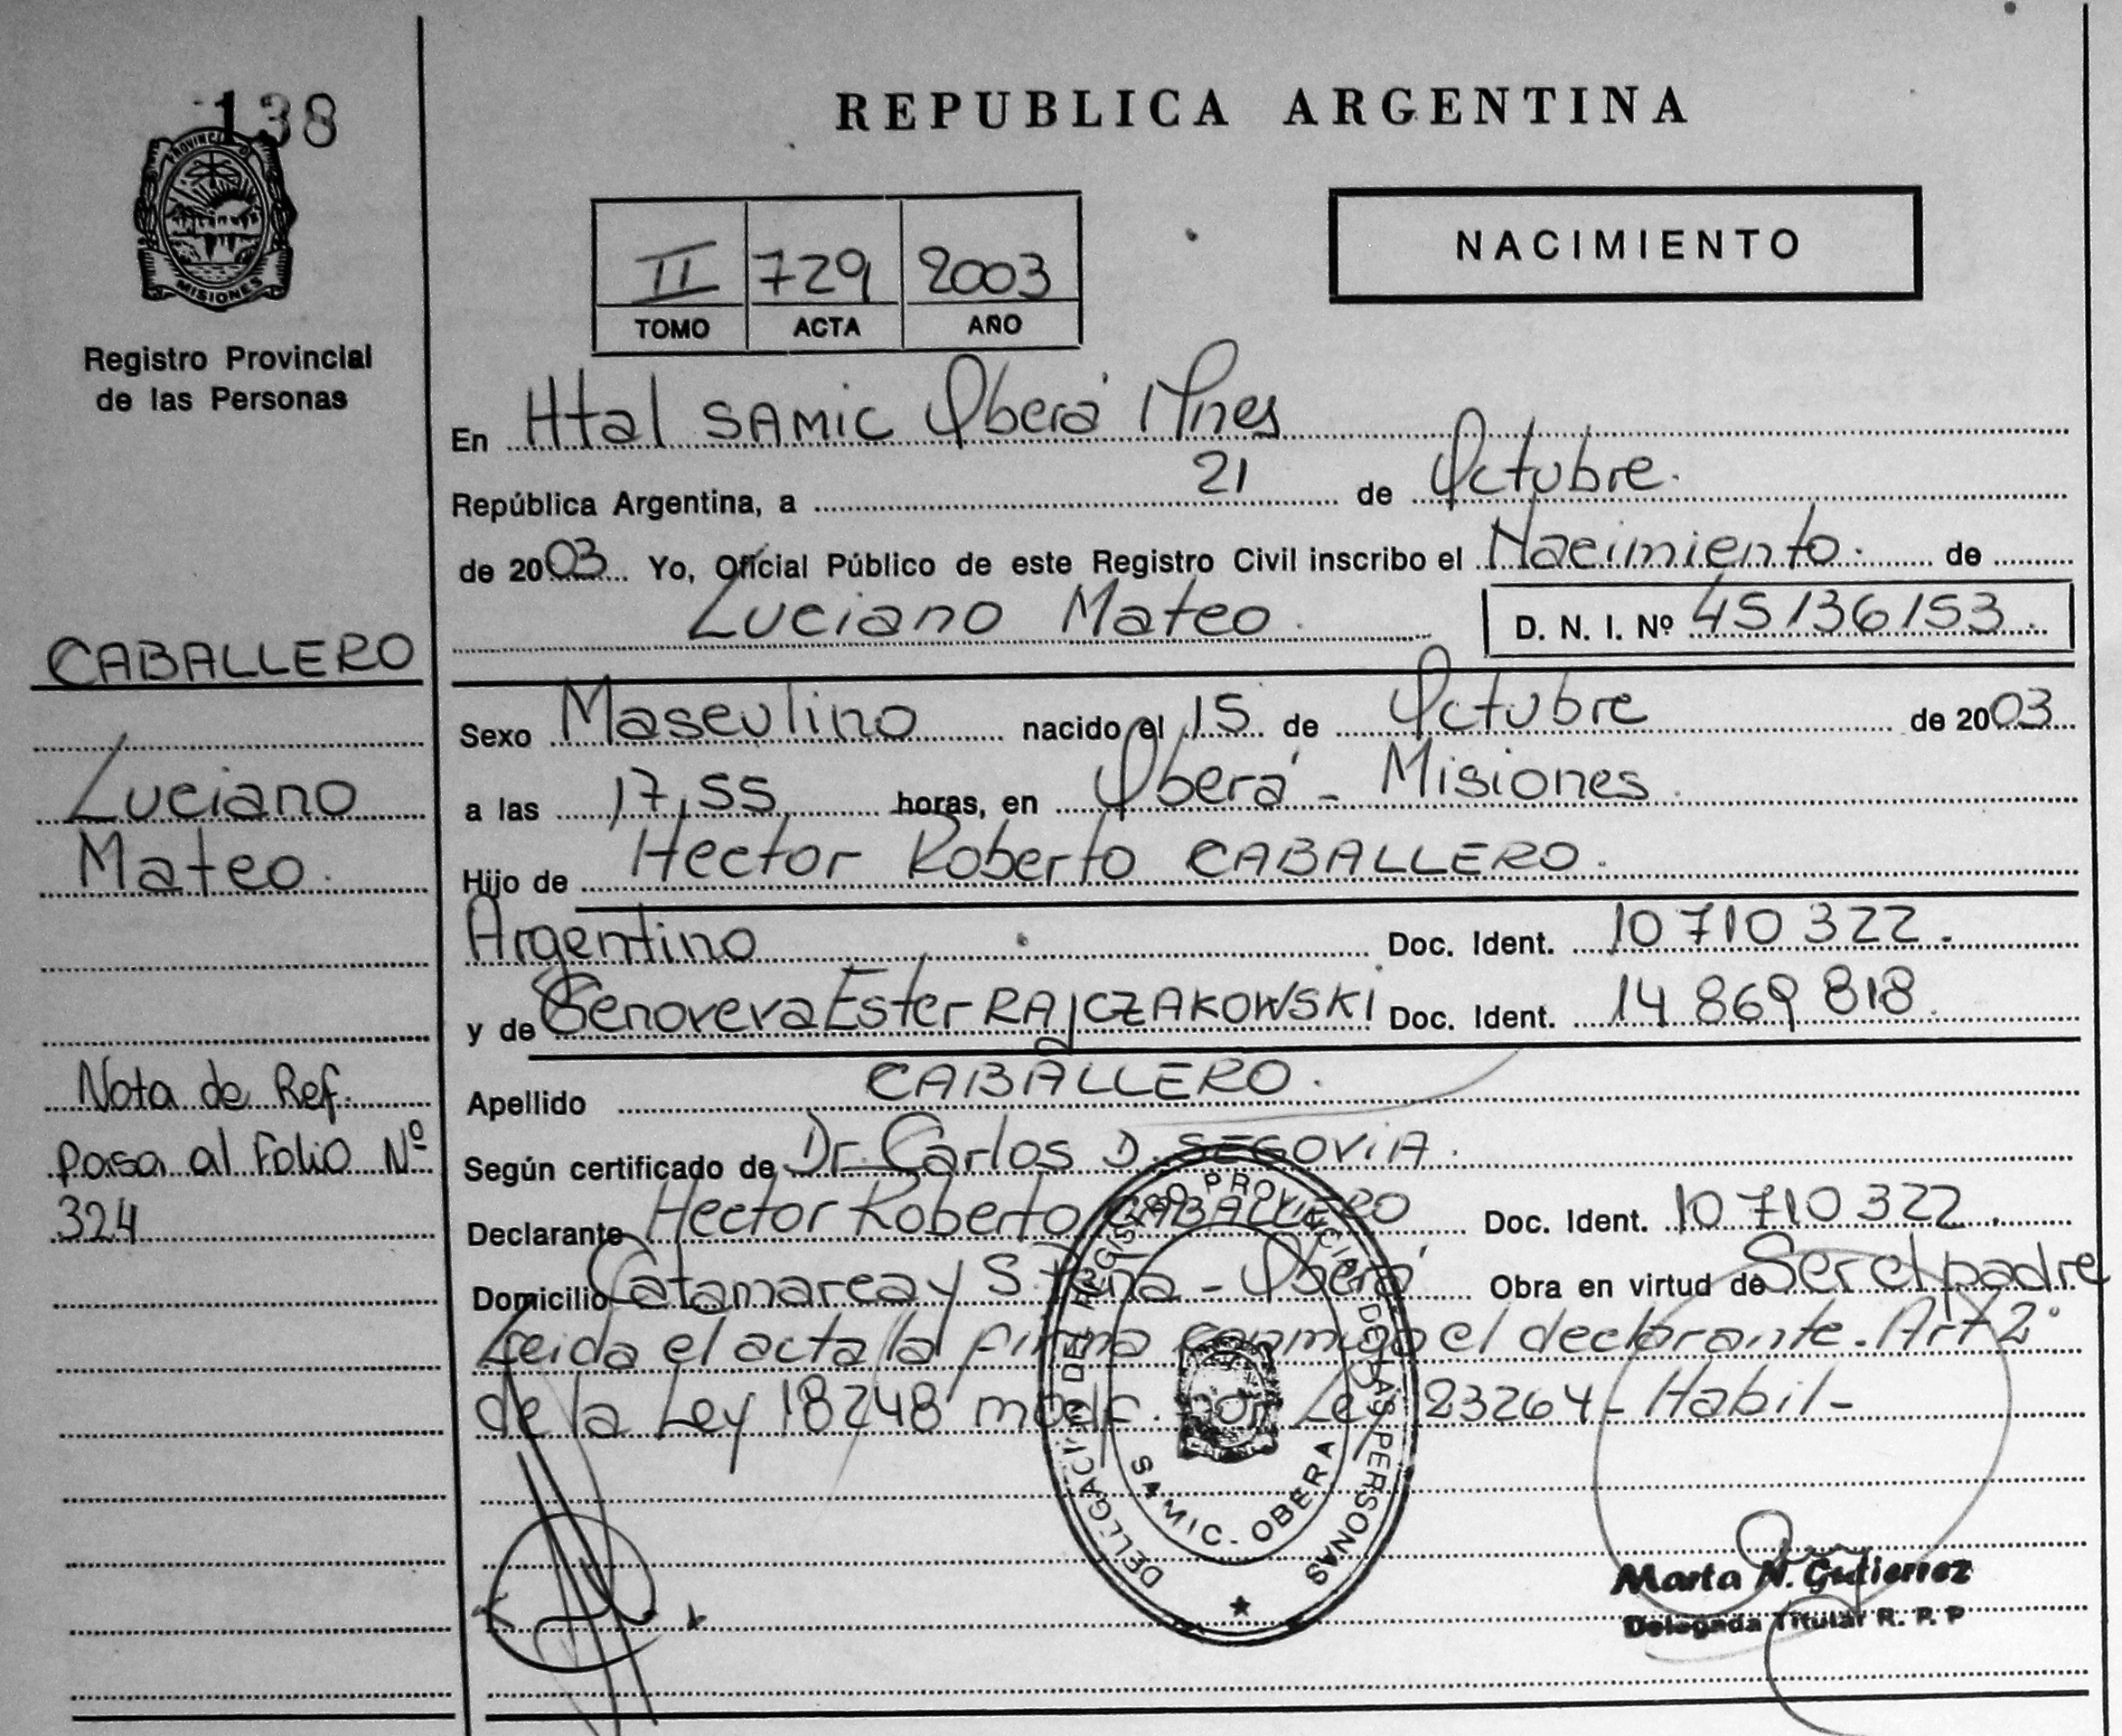 138
PROVINCIA DE
MISIONES
Registro Provincial
de las Personas
CABALLERO
Luciano
Mateo.
Nota de Ref.
Pasa al Folio Nº
324
REPUBLICA ARGENTINA
II 729 2003
TOMO ACTA AÑO
NACIMIENTO
En Htal SAMIC Oberá Mnes
República Argentina, a 21 de Octubre.
de 2003 Yo, Oficial Público de este Registro Civil inscribo el Nacimiento. de
Luciano Mateo. D. N. I. Nº 45136153.
Sexo Masculino nacido el 15 de Octubre de 2003
a las 17,55 horas, en Oberá - Misiones.
Hijo de Hector Roberto CABALLERO.
Argentino Doc. Ident. 10 710 322.
y de Genoveva Ester RAJCZAKOWSKI Doc. Ident. 14 869 818.
Apellido CABALLERO.
Según certificado de Dr. Carlos D. SEGOVIA.
Declarante Hector Roberto CABALLERO Doc. Ident. 10 710 322.
Domicilio Catamarca y S. Peña - Oberá Obra en virtud de Ser el padre
Leida el acta la firma conmigo el declarante. Art 2º
de la Ley 18248 modf. por Ley 23264 - Habil -
DELEGACION DEL REGISTRO PROVINCIAL DE LAS PERSONAS
SAMIC. OBERA
Marta N. Gutierrez
Delegada Titular R. P. P